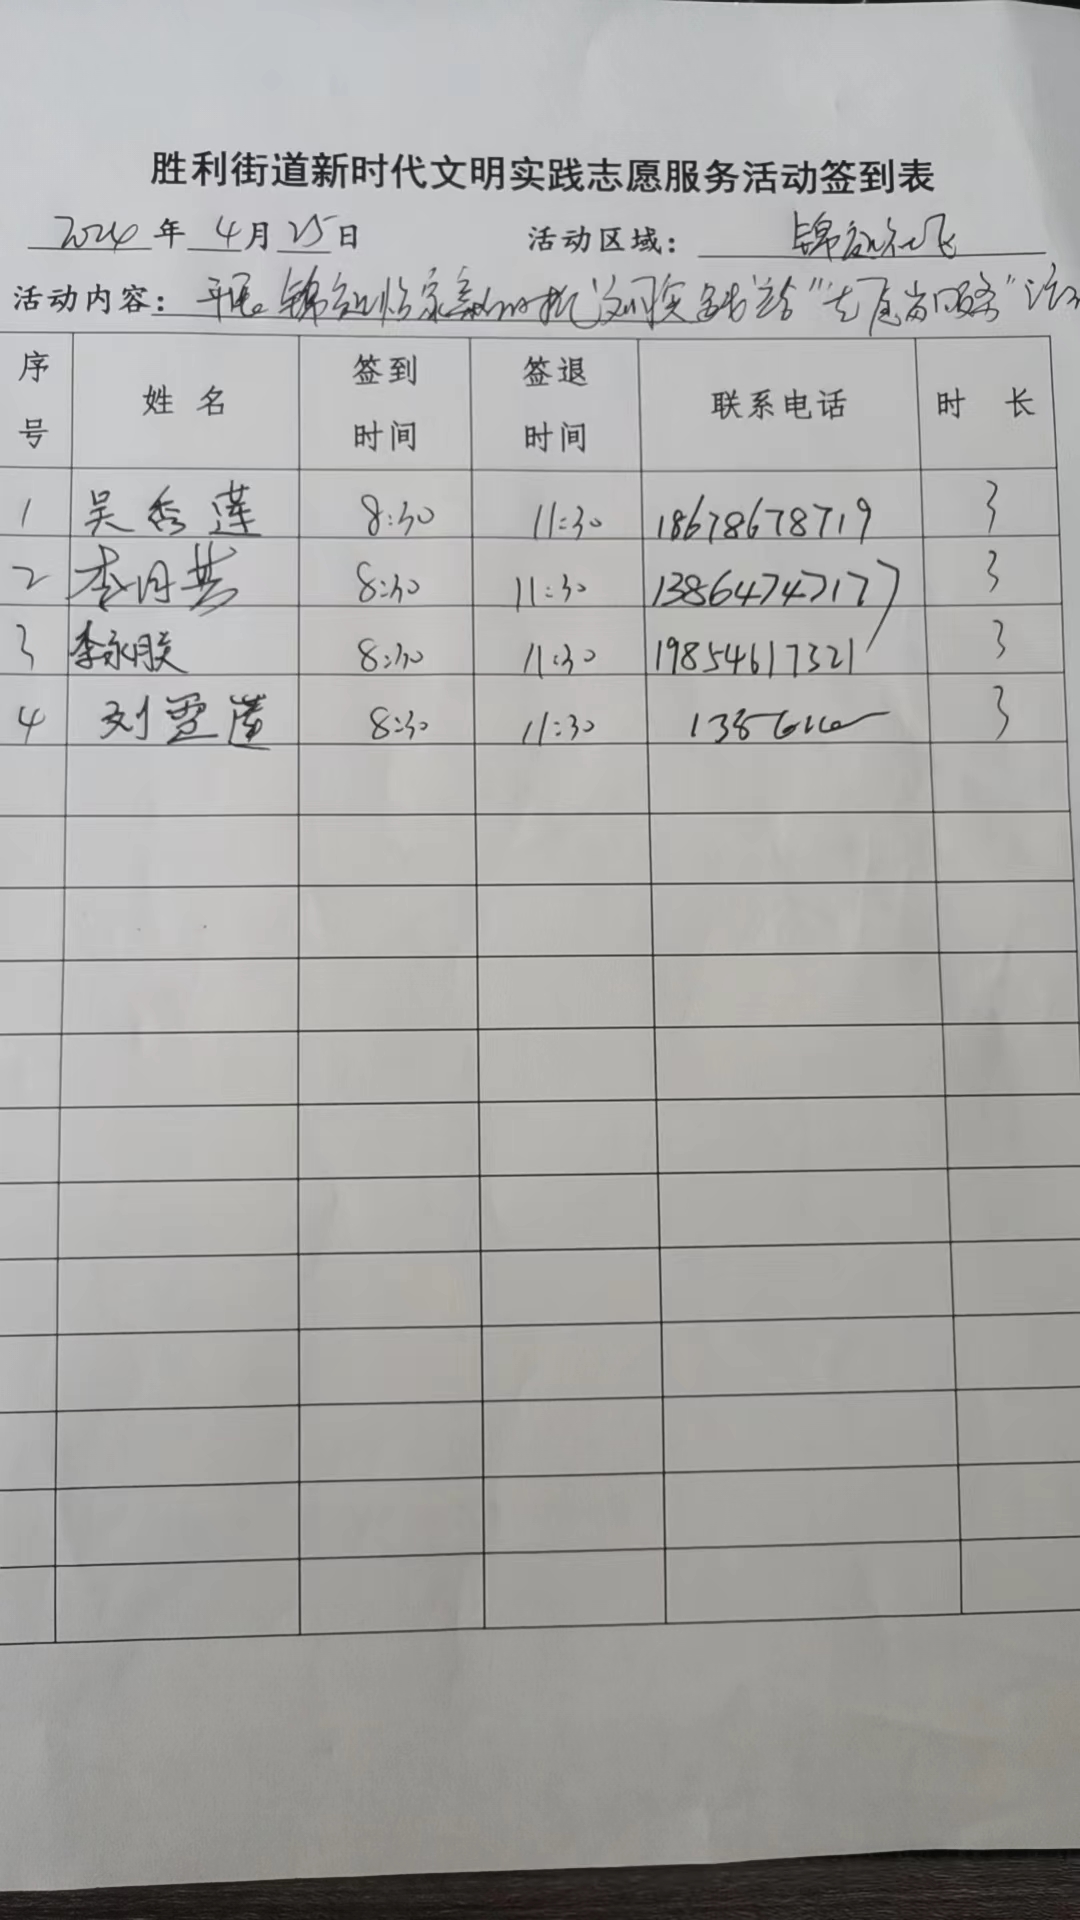 胜利街道新时代文明实践志愿服务活动签到表
2024年 4月25日 活动区域: 锦
活动内容: 开展锦 实践站"志愿 服务"活动
序号 姓名 签到时间 签退时间 联系电话 时长
1 吴秀莲 8:30 11:30 18678678719 3
2 李月英 8:30 11:30 13864747177 3
3 李永胶 8:30 11:30 19854617321 3
4 刘 8:30 11:30 3